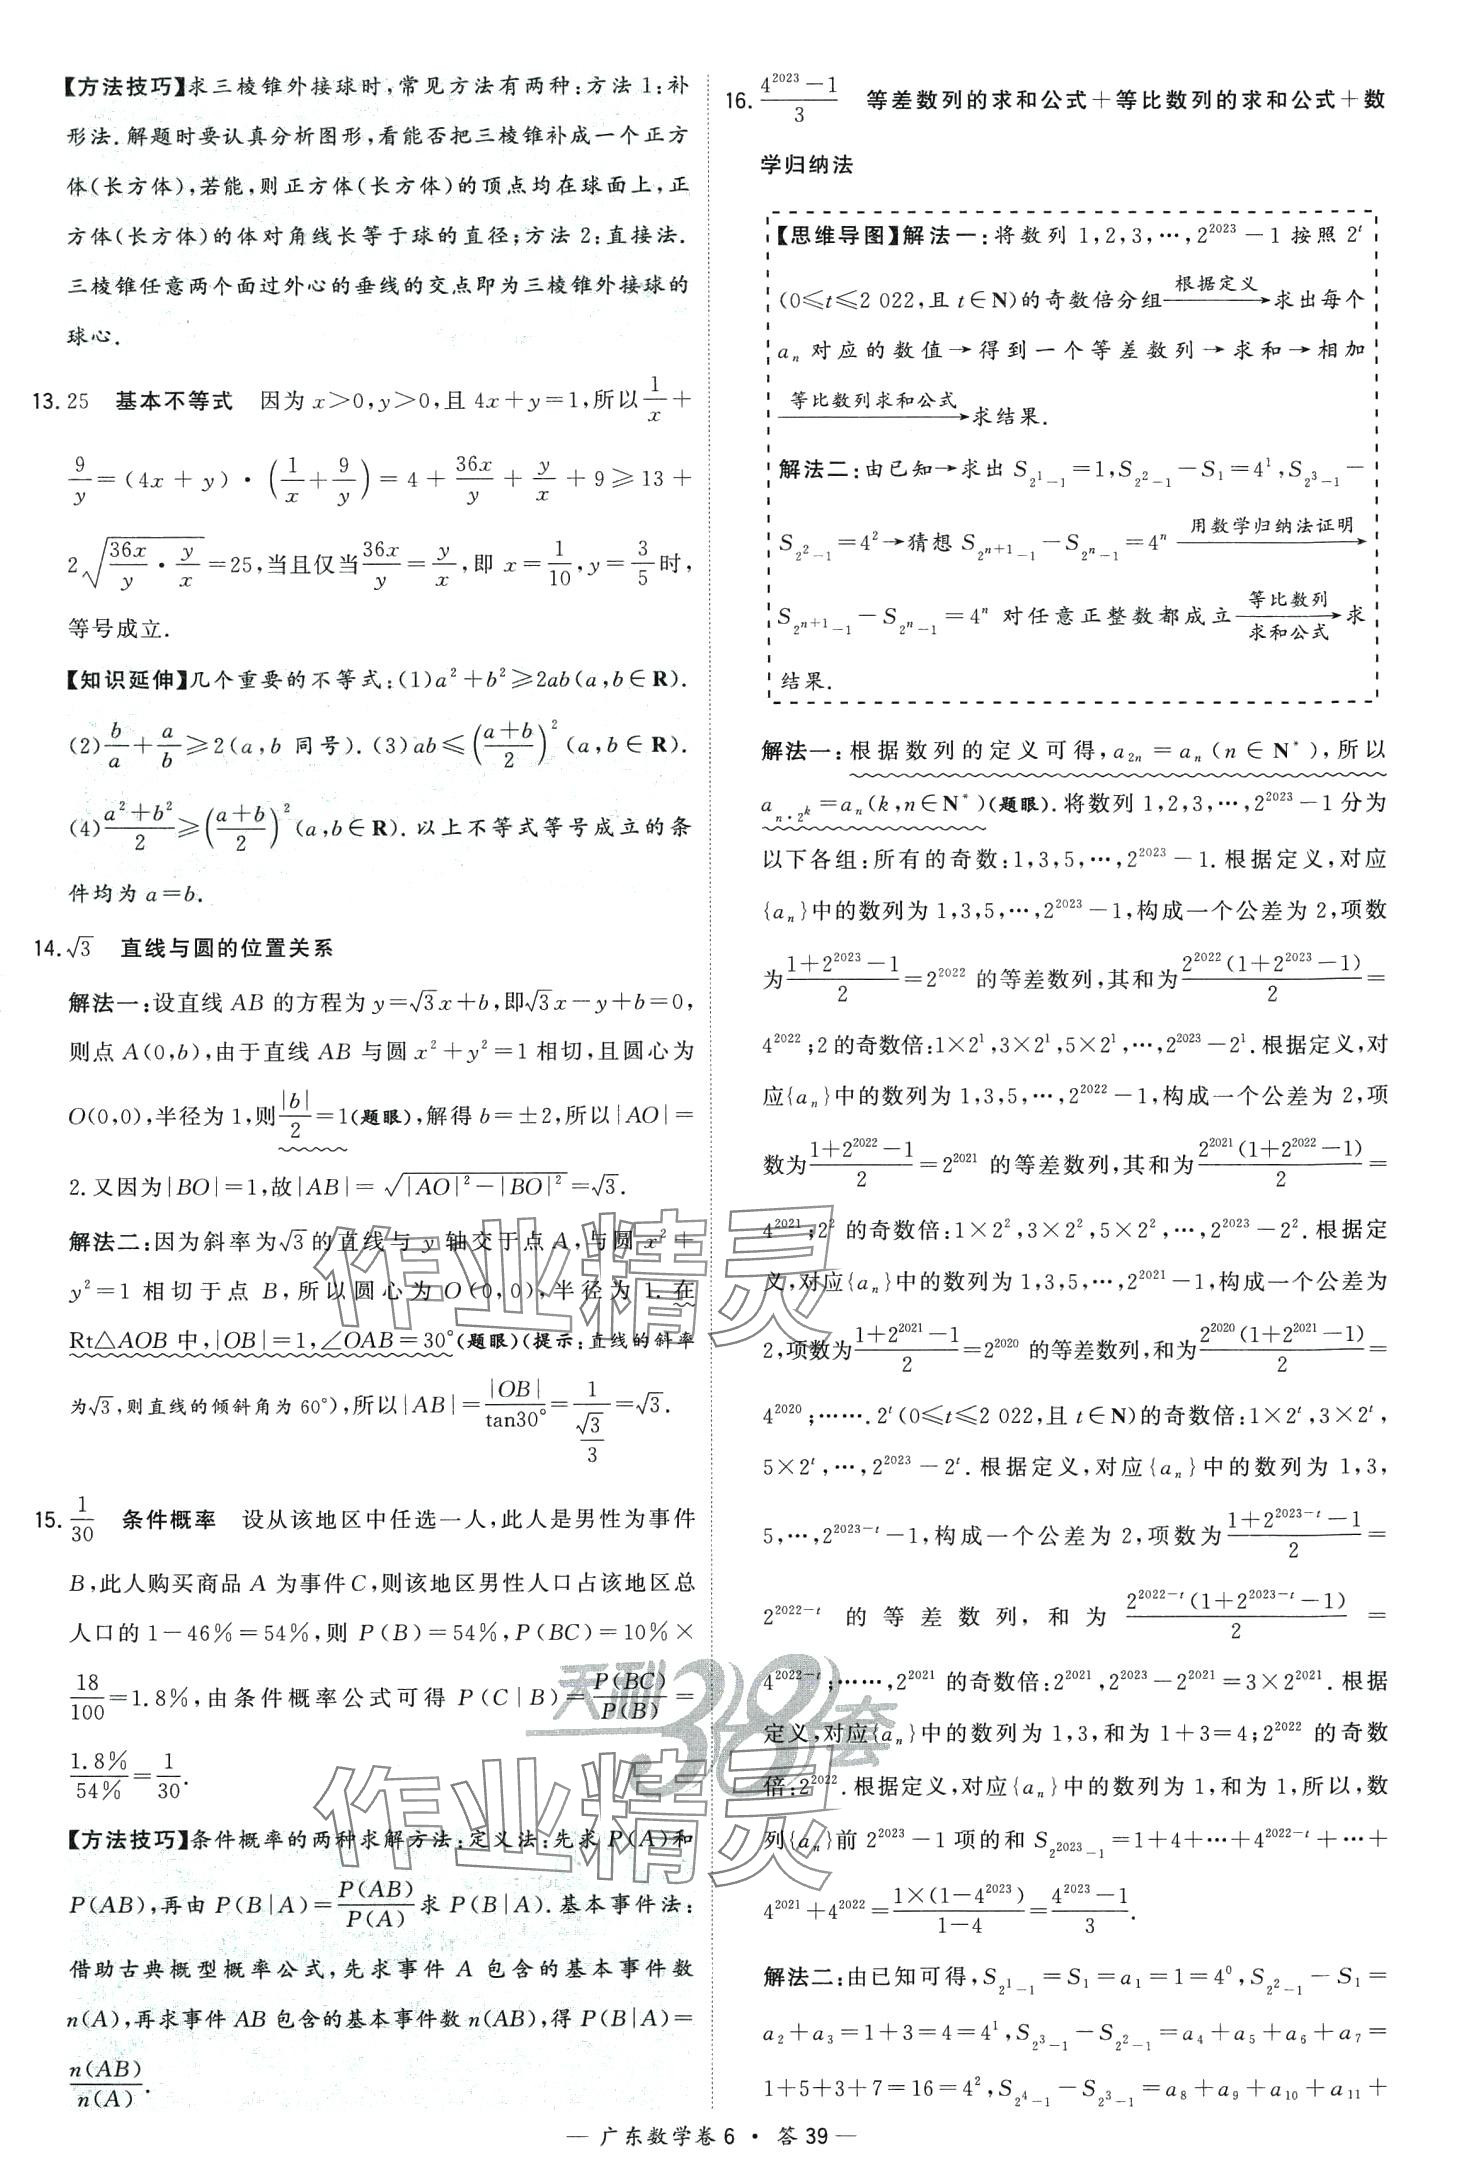 【方法技巧】求三棱锥外接球时,常见方法有两种:方法1:补
形法.解题时要认真分析图形,看能否把三棱锥补成一个正方
体(长方体),若能,则正方体(长方体)的顶点均在球面上,正
方体(长方体)的体对角线长等于球的直径;方法2:直接法.
三棱锥任意两个面过外心的垂线的交点即为三棱锥外接球的
球心.
13. 25 基本不等式 因为 x>0,y>0,且 4x+y=1,所以 1/x +
9/y =(4x+y)·(1/x + 9/y)=4+ 36x/y + y/x +9≥13+
2√(36x/y · y/x)=25,当且仅当 36x/y = y/x,即 x=1/10,y=3/5 时,
等号成立.
【知识延伸】几个重要的不等式:(1)a²+b²≥2ab(a,b∈R).
(2) b/a + a/b ≥2(a,b 同号).(3)ab≤((a+b)/2)²(a,b∈R).
(4)(a²+b²)/2 ≥((a+b)/2)²(a,b∈R).以上不等式等号成立的条
件均为 a=b.
14. √3 直线与圆的位置关系
解法一:设直线 AB 的方程为 y=√3x+b,即√3x-y+b=0,
则点 A(0,b),由于直线 AB 与圆 x²+y²=1 相切,且圆心为
O(0,0),半径为 1,则 |b|/2 =1(题眼),解得 b=±2,所以|AO|=
2.又因为|BO|=1,故|AB|=√(|AO|²-|BO|²)=√3.
解法二:因为斜率为√3的直线与 y 轴交于点 A,与圆 x²+
y²=1 相切于点 B,所以圆心为 O(0,0),半径为 1.在
Rt△AOB 中,|OB|=1,∠OAB=30°(题眼)(提示:直线的斜率
为√3,则直线的倾斜角为 60°),所以|AB|= |OB|/tan30° = 1/(√3/3) =√3.
15. 1/30 条件概率 设从该地区中任选一人,此人是男性为事件
B,此人购买商品 A 为事件C,则该地区男性人口占该地区总
人口的 1-46%=54%,则 P(B)=54%,P(BC)=10%×
18/100=1.8%,由条件概率公式可得 P(C|B)= P(BC)/P(B) =
1.8%/54% = 1/30.
【方法技巧】条件概率的两种求解方法:定义法:先求 P(A)和
P(AB),再由 P(B|A)= P(AB)/P(A) 求 P(B|A).基本事件法:
借助古典概型概率公式,先求事件 A 包含的基本事件数
n(A),再求事件 AB 包含的基本事件数 n(AB),得 P(B|A)=
n(AB)/n(A).
16. (4^2023-1)/3 等差数列的求和公式+等比数列的求和公式+数
学归纳法
【思维导图】解法一:将数列 1,2,3,…,2^2023-1 按照 2^t
(0≤t≤2 022,且 t∈N)的奇数倍分组 —根据定义→ 求出每个
a_n 对应的数值→得到一个等差数列→求和→相加
—等比数列求和公式→ 求结果.
解法二:由已知→求出 S_{2^1-1}=1,S_{2^2-1}-S_1=4^1,S_{2^3-1}-
S_{2^2-1}=4^2→猜想 S_{2^{n+1}-1}-S_{2^n-1}=4^n —用数学归纳法证明→
S_{2^{n+1}-1}-S_{2^n-1}=4^n 对任意正整数都成立 —等比数列求和公式→ 求
结果.
解法一:根据数列的定义可得,a_{2n}=a_n(n∈N*),所以
a_{n·2^k}=a_n(k,n∈N*)(题眼).将数列 1,2,3,…,2^2023-1 分为
以下各组:所有的奇数:1,3,5,…,2^2023-1.根据定义,对应
{a_n}中的数列为 1,3,5,…,2^2023-1,构成一个公差为 2,项数
为 (1+2^2023-1)/2 =2^2022 的等差数列,其和为 2^2022(1+2^2023-1)/2 =
4^2022;2 的奇数倍:1×2^1,3×2^1,5×2^1,…,2^2023-2^1.根据定义,对
应{a_n}中的数列为 1,3,5,…,2^2022-1,构成一个公差为 2,项
数为 (1+2^2022-1)/2 =2^2021 的等差数列,其和为 2^2021(1+2^2022-1)/2 =
4^2021;2^2 的奇数倍:1×2^2,3×2^2,5×2^2,…,2^2023-2^2.根据定
义,对应{a_n}中的数列为 1,3,5,…,2^2021-1,构成一个公差为
2,项数为 (1+2^2021-1)/2 =2^2020 的等差数列,和为 2^2020(1+2^2021-1)/2 =
4^2020;…….2^t(0≤t≤2 022,且 t∈N)的奇数倍:1×2^t,3×2^t,
5×2^t,…,2^2023-2^t.根据定义,对应{a_n}中的数列为 1,3,
5,…,2^{2023-t}-1,构成一个公差为 2,项数为 (1+2^{2023-t}-1)/2 =
2^{2022-t} 的等差数列,和为 2^{2022-t}(1+2^{2023-t}-1)/2 =
4^{2022-t};……,2^2021 的奇数倍:2^2021,2^2023-2^2021=3×2^2021.根据
定义,对应{a_n}中的数列为 1,3,和为 1+3=4;2^2022 的奇数
倍:2^2022.根据定义,对应{a_n}中的数列为 1,和为 1,所以,数
列{a_n}前 2^2023-1 项的和 S_{2^2023-1}=1+4+…+4^{2022-t}+…+
4^2021+4^2022= 1×(1-4^2023)/(1-4) = (4^2023-1)/3.
解法二:由已知可得,S_{2^1-1}=S_1=a_1=1=4^0,S_{2^2-1}-S_1=
a_2+a_3=1+3=4=4^1,S_{2^3-1}-S_{2^2-1}=a_4+a_5+a_6+a_7=
1+5+3+7=16=4^2,S_{2^4-1}-S_{2^3-1}=a_8+a_9+a_10+a_11+
作业精灵
天利38套
作业精灵
— 广东数学卷 6 · 答 39 —